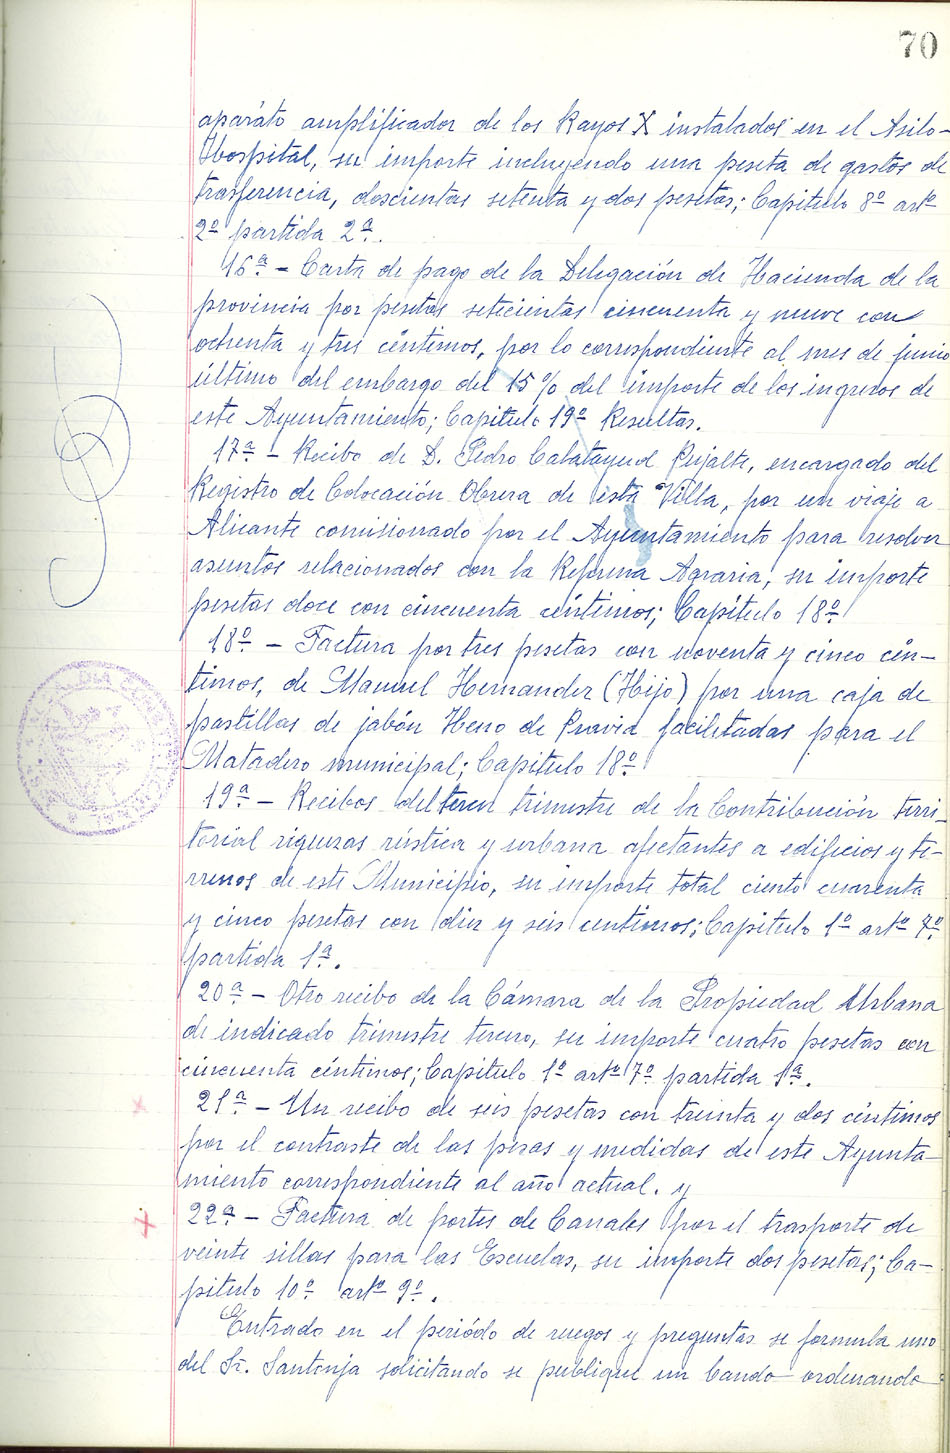 70
aparáto amplificador de los Rayos X instalados en el Asilo-
Hospital, su importe incluyendo una peseta de gastos de
trasferencia, doscientas setenta y dos pesetas; Capitulo 8º artº
2º partida 2ª.
16ª - Carta de pago de la Delegación de Hacienda de la
provincia por pesetas setecientas cincuenta y nueve con
ochenta y tres céntimos, por lo correspondiente al mes de junio
último del embargo del 15% del importe de los ingresos de
este Ayuntamiento; Capitulo 19º Resultas.
17ª - Recibo de D. Pedro Calatayud Pujalte, encargado del
Registro de Colocación Obrera de esta Villa, por un viaje a
Alicante comisionado por el Ayuntamiento para resolver
asuntos relacionados con la Reforma Agraria, su importe
pesetas doce con cincuenta céntimos; Capítulo 18º
18º - Factura por tres pesetas con noventa y cinco cén-
timos, de Manuel Hernandez (Hijo) por una caja de
pastillas de jabón Heno de Pravia facilitadas para el
Matadero municipal; Capitulo 18º
19ª - Recibos del tercer trimestre de la Contribución terri-
torial riquezas rústica y urbana afectantes a edificios y te-
rrenos de este Municipio, su importe total ciento cuarenta
y cinco pesetas con diez y seis centimos; Capitulo 1º artº 7º
partida 1ª.
20ª - Otro recibo de la Cámara de la Propiedad Urbana
de indicado trimestre tercero, su importe cuatro pesetas con
cincuenta céntimos; Capitulo 1º artº 7º partida 1ª.
21ª - Un recibo de seis pesetas con treinta y dos céntimos
por el contraste de las pesas y medidas de este Ayunta-
miento correspondiente al año actual. y
22ª - Factura de portes de Canales por el trasporte de
veinte sillas para las Escuelas, su importe dos pesetas; Ca-
pitulo 10º artº 9º.
Entrado en el periódo de ruegos y preguntas se formula uno
del Sr. Santonja solicitando se publique un bando ordenando